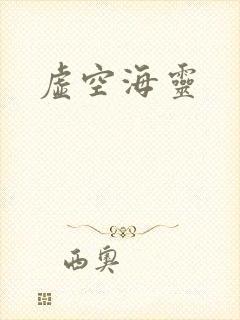 虛空海靈
西奧